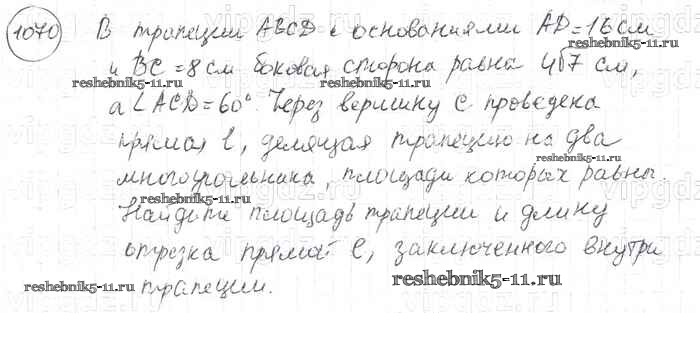 1070 В трапеции ABCD с основаниями AD=16 см
и BC=8 см боковая сторона равна 4√7 см,
reshebnik5-11.ru
а ∠ACD=60°. Через вершину C проведена
прямая l, делящая трапецию на два
reshebnik5-11.ru
многоугольника, площади которых равны.
reshebnik5-11.ru
Найдите площадь трапеции и длину
отрезка прямой l, заключенного внутри
reshebnik5-11.ru
трапеции.
reshebnik5-11.ru
vipgdz.ru